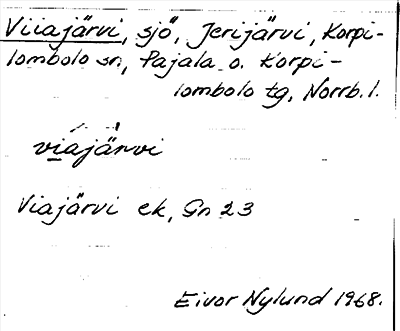 Viiajärvi, sjö, Jerijärvi, Korpi-
lombolo sn, Pajala o. Korpi-
lombolo tg, Norrb. l.
viajärvi
Viajärvi ek, Gn 23
Eivor Nylund 1968.